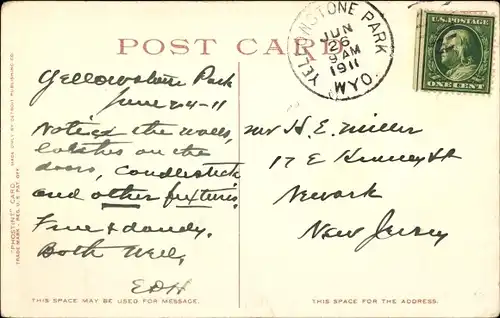 POST CARD
YELLOWSTONE PARK
JUN
26
9 AM
1911
WYO.
U.S. POSTAGE
ONE CENT
"PHOSTINT" CARD
MADE ONLY BY DETROIT PUBLISHING CO.
TRADE MARK - REG. U.S. PAT. OFF.
Yellowstone Park
June 24-11
Notice the walls,
latches on the
doors, candlestick
and other fixtures.
Fine & dandy.
Both Well,
EDH
THIS SPACE MAY BE USED FOR MESSAGE.
Mr H. E. Miller
17 E Kinney St
Newark
New Jersey
THIS SPACE IS FOR THE ADDRESS.